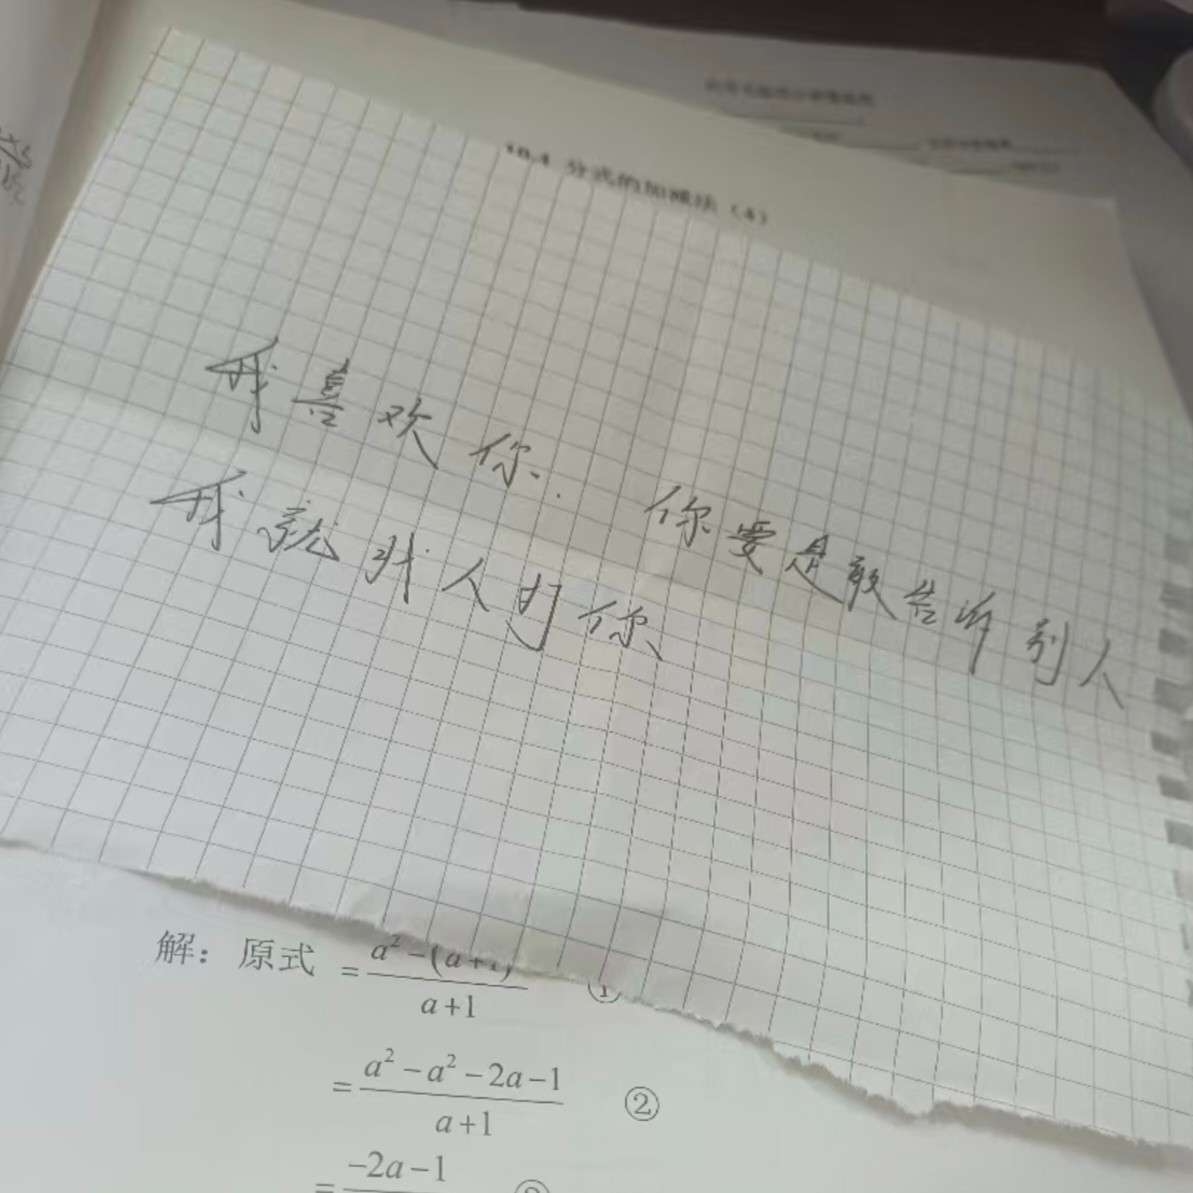 10.4 分式的加减法（4）
我喜欢你.. 你要是敢告诉别人
我就找人打你
解：原式 = a² - (a+1) / a+1 ①
= a² - a² - 2a - 1 / a+1 ②
= -2a - 1